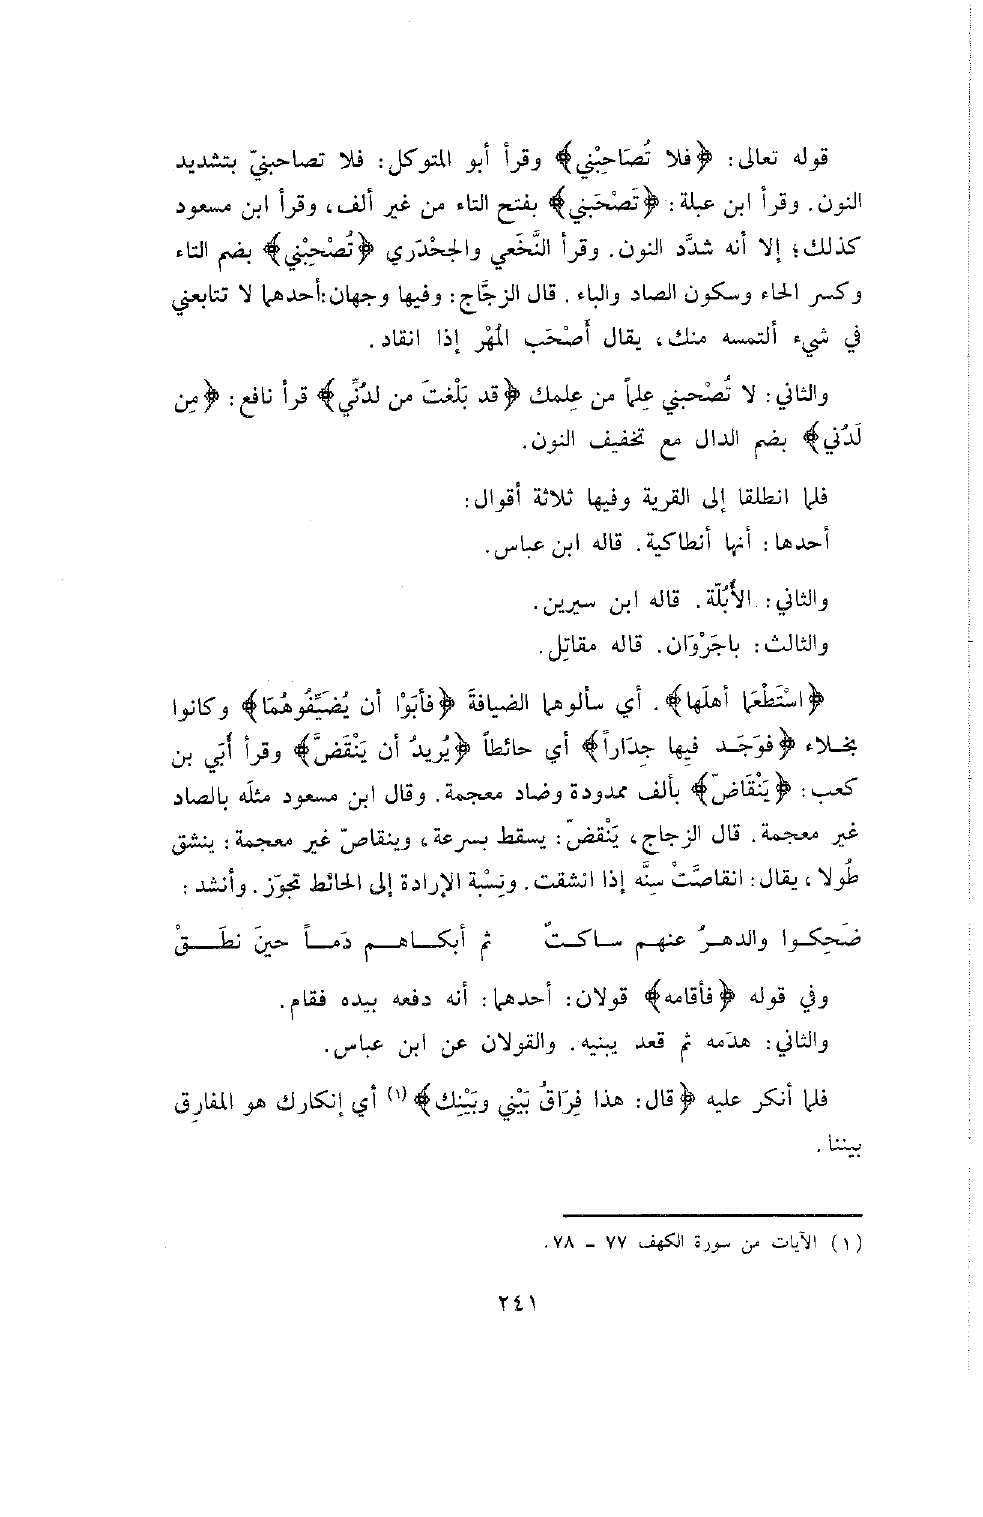 قوله تعالى: ﴿فلا تُصَاحِبْني﴾ وقرأ أبو المتوكل: فلا تصاحبنيّ بتشديد
النون. وقرأ ابن عبلة: ﴿تَصْحَبني﴾ بفتح التاء من غير ألف، وقرأ ابن مسعود
كذلك؛ إلا أنه شدَّد النون. وقرأ النَّخَعي والجحْدَري ﴿تُصْحِبْني﴾ بضم التاء
وكسر الحاء وسكون الصاد والباء. قال الزجَّاج: وفيها وجهان: أحدهما لا تتابعني
في شيء ألتمسه منك، يقال أَصْحَب المُهْر إذا انقاد.
والثاني: لا تُصْحبني عِلماً من عِلمك ﴿قد بَلْغتَ من لدُنِّي﴾ قرأ نافع: ﴿مِن
لَدُني﴾ بضم الدال مع تخفيف النون.
فلما انطلقا إلى القرية وفيها ثلاثة أقوال:
أحدها: أنها أنطاكية. قاله ابن عباس.
والثاني: الأُبُلّة. قاله ابن سيرين.
والثالث: باجَرْوَان. قاله مقاتِل.
﴿اسْتَطْعَما أهلَها﴾. أي سألوهما الضيافةَ ﴿فأبَوْا أن يُضَيِّفُوهُمَا﴾ وكانوا
بخلاء ﴿فوَجَد فيها جِدَاراً﴾ أي حائطاً ﴿يُريدُ أن يَنْقَضَّ﴾ وقرأ أُبَي بن
كعب: ﴿يَنْقَاضّ﴾ بألف ممدودة وضاد معجمة. وقال ابن مسعود مثلَه بالصاد
غير معجمة. قال الزجاج، يَنْقضّ: يسقط بسرعة، وينقاصّ غير معجمة: ينشق
طُولا، يقال: انقاصَّتْ سِنَّه إذا انشقت. ونِسْبة الإرادة إلى الحائط تجوّز. وأنشد:
ضَحِكـوا والدهـرُ عنهـم سـاكـتٌ ثم أبكـاهـم دَمـاً حينَ نطَـقْ
وفي قوله ﴿فأقامه﴾ قولان: أحدهما: أنه دفعه بيده فقام.
والثاني: هدَمه ثم قعد يبنيه. والقولان عن ابن عباس.
فلما أنكر عليه ﴿قال: هذا فِرَاقُ بَيْني وبَيْنِك﴾ (١) أي إنكارك هو المفارِق
بيننا.
(١) الآيات من سورة الكهف ٧٧ ـ ٧٨.
٢٤١